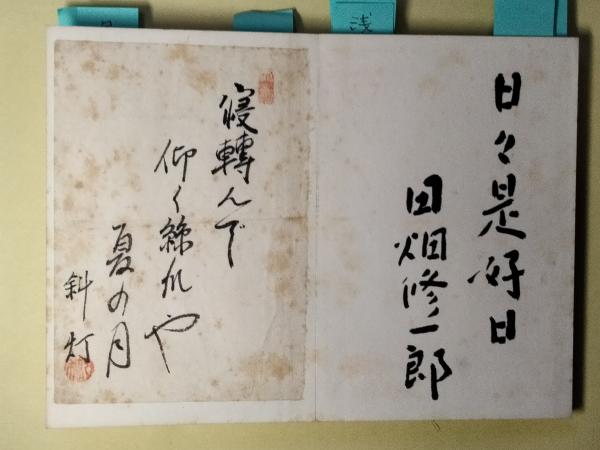 浅
日々是好日
田畑修一郎
寢轉んで
仰く絲瓜や
夏の月
斜灯